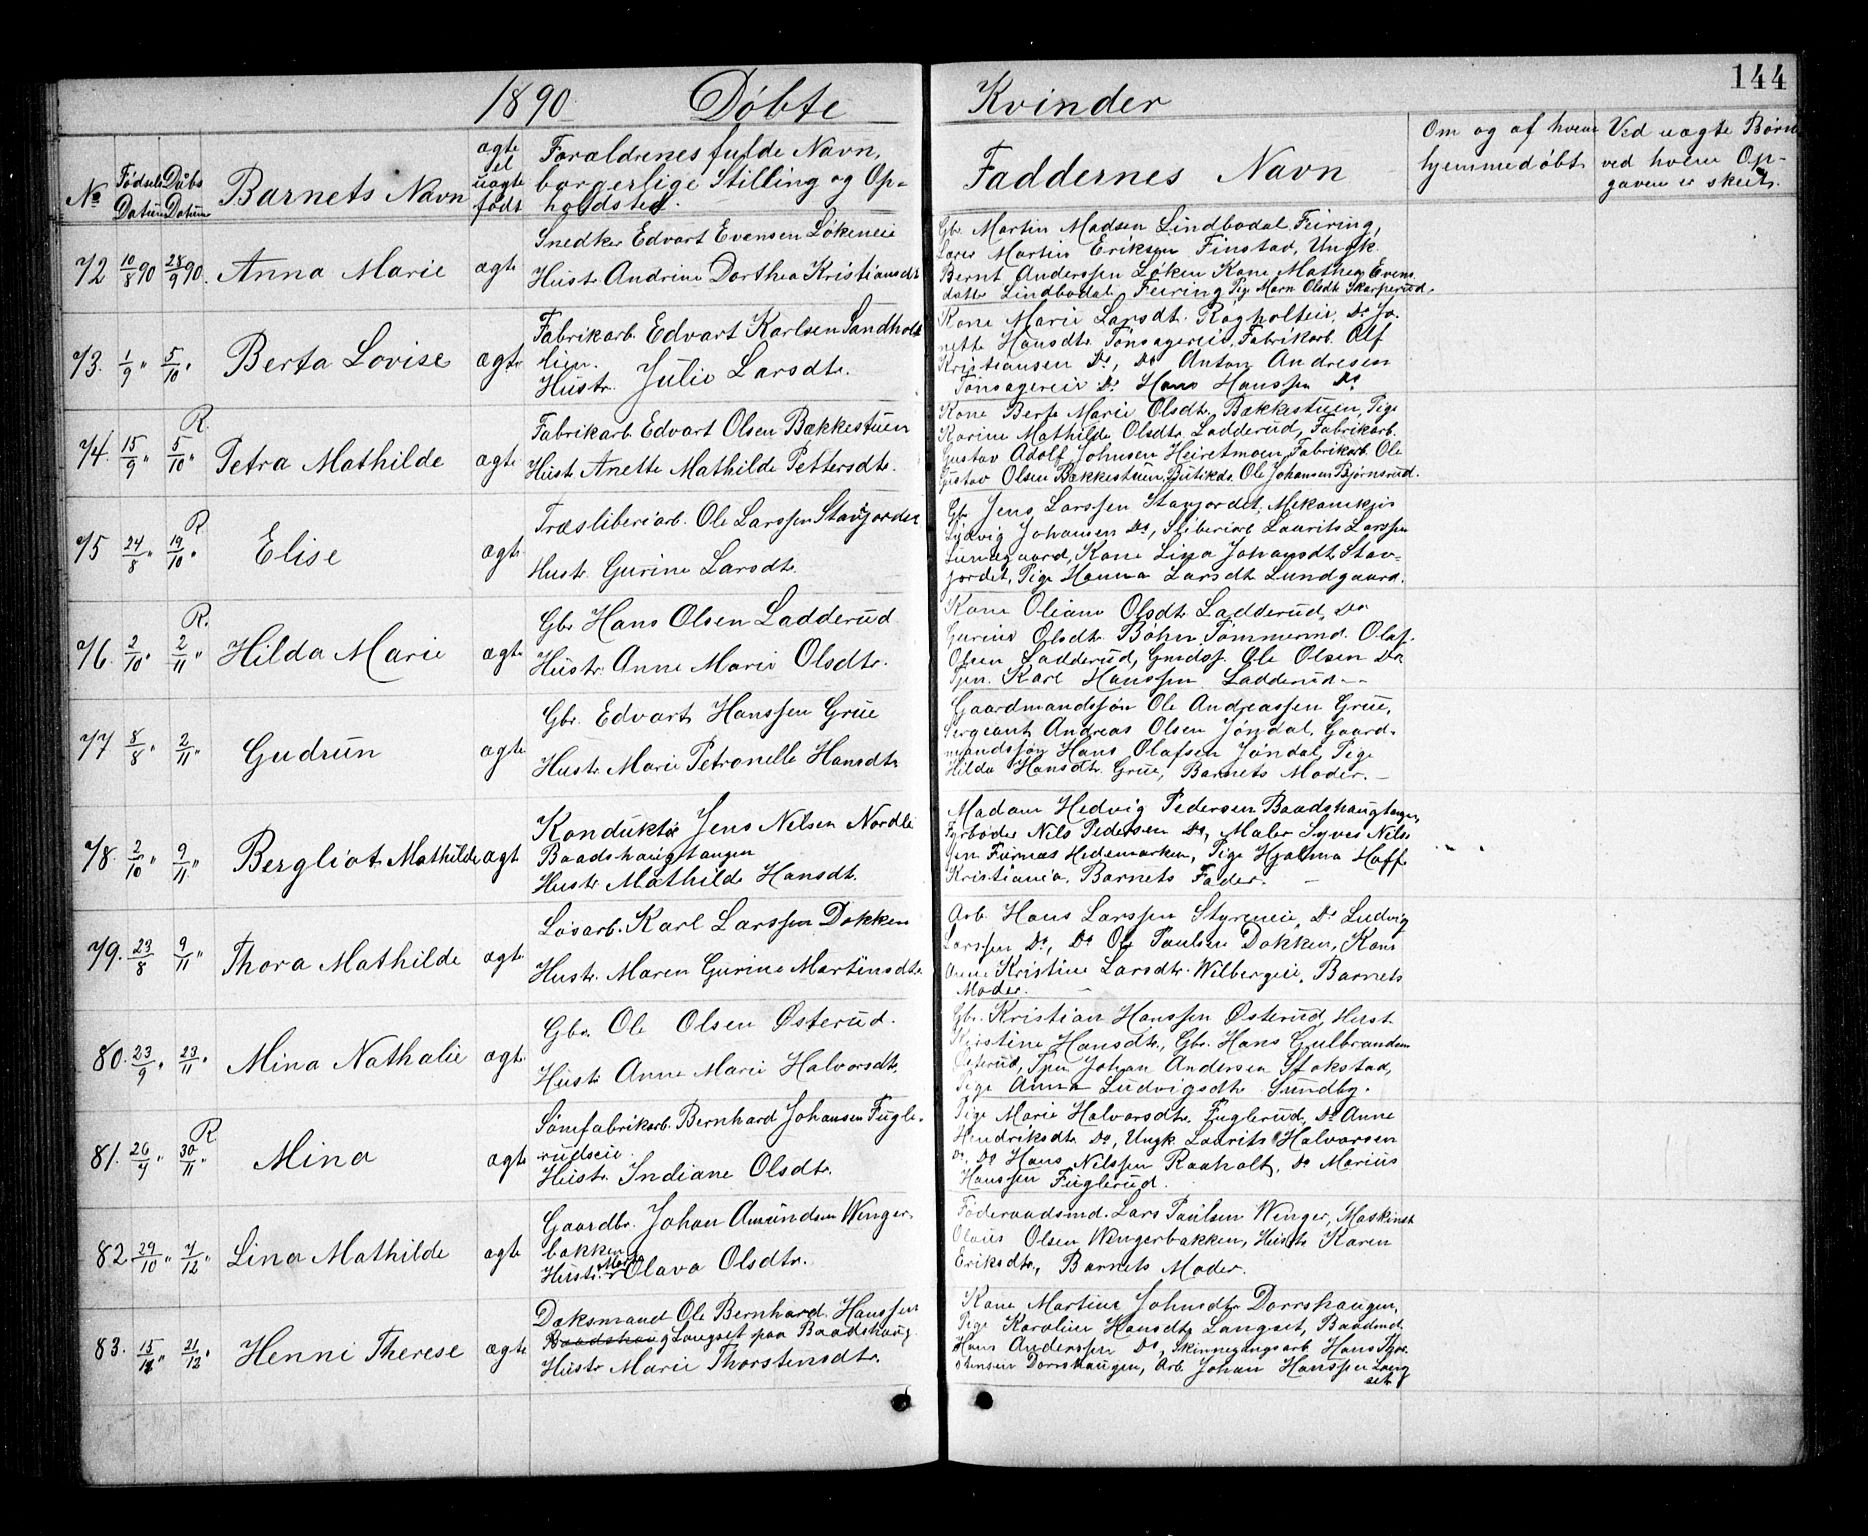 144
1890 Døbte Kvinder
No
Fødsels Datum
Daabs Datum
Barnets Navn
ægte el uægte født
Forældrenes fulde Navn, borgerlige Stilling og Opholdsted.
Faddernes Navn
Om og af hvem hjemmedøbt
Ved uægte Børn ved hvem Opgaven er skeet.
72 10/8 90 28/9 90. Anna Marie ægte
Snedker Edvart Evensen Løkeneie
Hustr. Andrine Dorthea Kristiansdt
Gbr. Martin Madsen Lindbødal Feiring,
Lærer Martin Eriksen Finstad, Ungk.
Bernt Anderssen Løken Kone Mathea Evens
datter Lindbødal Feiring Pige Marn Olsdt. Skarperud.
73. 1/9 " 5/10 " Berta Lovise ægte
Fabrikarb. Edvart Karlsen Sandholt
lien.
Hustr. Julie Larsdtr.
Kone Marie Larsdt. Ragholteie, Do Jo-
nette Hansdtr. Tønsagereie, Fabrikarb. Olf
Kristiansen Do, Do Anton Andresen
Tønsagereie Do Hans Hanssen Do
74. 15/9 " R. 5/10 " Petra Mathilde ægte
Fabrikarb. Edvart Olsen Bækkestuen
Hustr. Anette Mathilde Pettersdtr.
Kone Berte Marie Olsdtr. Bækkestuen, Pige
Karine Mathilde Olsdtr. Ladderud, Fabrikarb.
Gustav Adolf Johnsen Heiretmoen Fabrikarb. Ole
Gustav Olsen Bækkestuen, Butikds. Ole Johansen Bjørnsrud.
75 24/8 " R 19/10 " Elise ægte
Træsliberiarb. Ole Larssen Stavjordet
Hustr. Gurine Larsdtr.
Gbr. Jens Larssen Stavjordet, Mekanikjs
Ludvig Johansen Do, Sliberiarb Laurits Larssen
Lundgaard, Kone Lina Johansdt. Stav-
jordet, Pige Hanna Larsdt. Lundgaard.
76. 2/10 " R. 2/11 " Hilda Marie ægte
Gbr Hans Olsen Ladderud
Hustr. Anne Marie Olsdtr.
Kone Oliane Olsdtr. Ladderud, Do
Gurine Olsdtr. Bøhn, Tømmermd. Olaf
Olsen Ladderud, Gmdss. Ole Olsen Do
Tjen. Karl Hanssen Ladderud --
77 8/8 " 2/11 " Gudrun ægte
Gbr. Edvart Hanssen Grue
Hustr. Marie Petronelle Hansdtr
Gaardmandssøn Ole Andreassen Grue,
Sergeant Andreas Olsen Jøndal, Gaard-
mandssøn Hans Olafsen Jøndal, Pige
Hilda Hansdtr. Grue, Barnets Moder. -
78. 2/10 " 9/11 " Bergliot Mathilde ægt
Konduktør Jens Nelsen Nordli
Baadshaugtangen
Hustr Mathilde Hansdt.
Madam Hedvig Pedersen Baadshaugtangen,
Fyrbøder Nils Pedersen Do, Maler Syver Nils-
sen Furnæs Hedemarken, Pige Hjalma Hoff
Kristiania, Barnets Fader. -
79. 23/8 9/11 " Thora Mathilde ægte
Løsarb. Karl Larssen Dokken
Hustr. Maren Gurine Martinsdtr.
Arb. Hans Larssen Styrereie, Do Ludvig
Larssen Do, Do Ole Paulsen Dokken, Kone
Anne Kristine Larsdtr. Wilbergeie, Barnets
Moder. -
80. 23/9 " 23/11 " Mina Nathalie ægte
Gbr. Ole Olsen Østerud.
Hustr Anne Marie Halvorsdtr.
Gbr. Kristian Hanssen Østerud, Hust
Kirstine Hansdtr., Gbr. Hans Gulbrandsen
Østerud, Tjen Johan Andersen Stokstad,
Pige Anna Ludvigsdtr. Sundby.
81. 26/7 " R 30/11 " Mina ægte
Sømfabrikarb. Bernhard Johansen Fugle-
rudseie.
Hustr. Indiane Olsdtr.
Pige Marie Halvorsdtr. Fuglerud, Do Anne
Hendriksdtr. Do, Ungk. Laurits Halvorsen
Do, Do Hans Nilssen Raaholt, Do Marius
Hanssen Fuglerud.
82 29/10 " 7/12 " Lina Mathilde ægte
Gaardbr. Johan Amundsen Wenger-
bakken
Hustr. Marte Olava Olsdtr.
Føderaadsmd. Lars Paulsen Wenger, Maskinst
Olaus Olsen Wengerbakken, Hustr Karen
Eriksdtr, Barnets Moder.
83. 15/11 " 21/12 " Henni Therese ægte
Doksmand Ole Bernhard Hanssen
Baadshaug Langset paa Baadshaug
Hustr Marie Thorstensdtr.
Kone Martine Johnsdtr. Dorrshaugen,
Pige Karoline Hansdtr. Langset, Baadmd.
Hans Anderssen Do, Skinnegangsarb. Hans Thor-
stensen Dorrshaugen, Arb. Johan Hanssen Lang
set